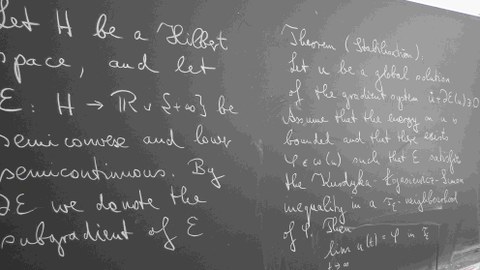 Let H be a Hilbert
space, and let
E : H → ℝ ∪ {+∞} be
semiconvex and lower
semicontinuous. By
∂E we denote the
subgradient of E
Theorem (Stabilisation).
Let u be a global solution
of the gradient system u̇ + ∂E(u) ∋ 0
Assume that the energy
bounded and that there exists
φ ∈ ω(u) such that E satisfies
the Kurdyka-Łojasiewicz-Simon
inequality in a τ_E-neighbourhood
of φ Then
lim u(t) = φ in τ_E
t→∞